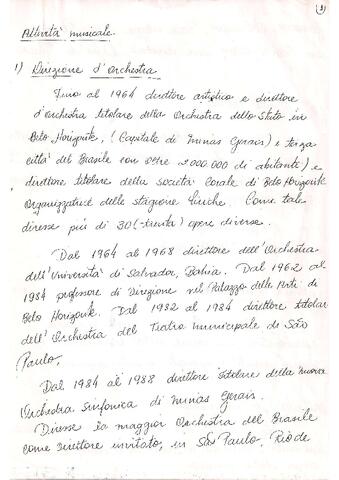 9)
Attività musicale.
1) Direzione d'orchestra
Fino al 1964 direttore artistico e direttore
d'orchestra titolare della Orchestra dello Stato in
Belo Horizonte, (Capitale di Minas Gerais) e terza
città del Brasile con oltre 2000.000 di abitanti) e
direttore titolare della società Corale di Belo Horizonte
Organizzatrice delle stagione liriche. Come tale
diresse più di 30 (trenta) opere diverse.
Dal 1964 al 1968 direttore dell'Orchestra
dell'Università di Salvador, Bahia. Dal 1962 al
1984 professore di Direzione nel Palazzo delle Arti di
Belo Horizonte. Dal 1982 al 1984 direttore titolar
dell'Orchestra del Teatro Municipale de São
Paulo,
Dal 1984 al 1988 direttore titolare della nuova
Orchestra Sinfonica di Minas Gerais.
Diresse la maggior Orchestra del Brasile
come direttore invitato, in São Paulo, Rio de